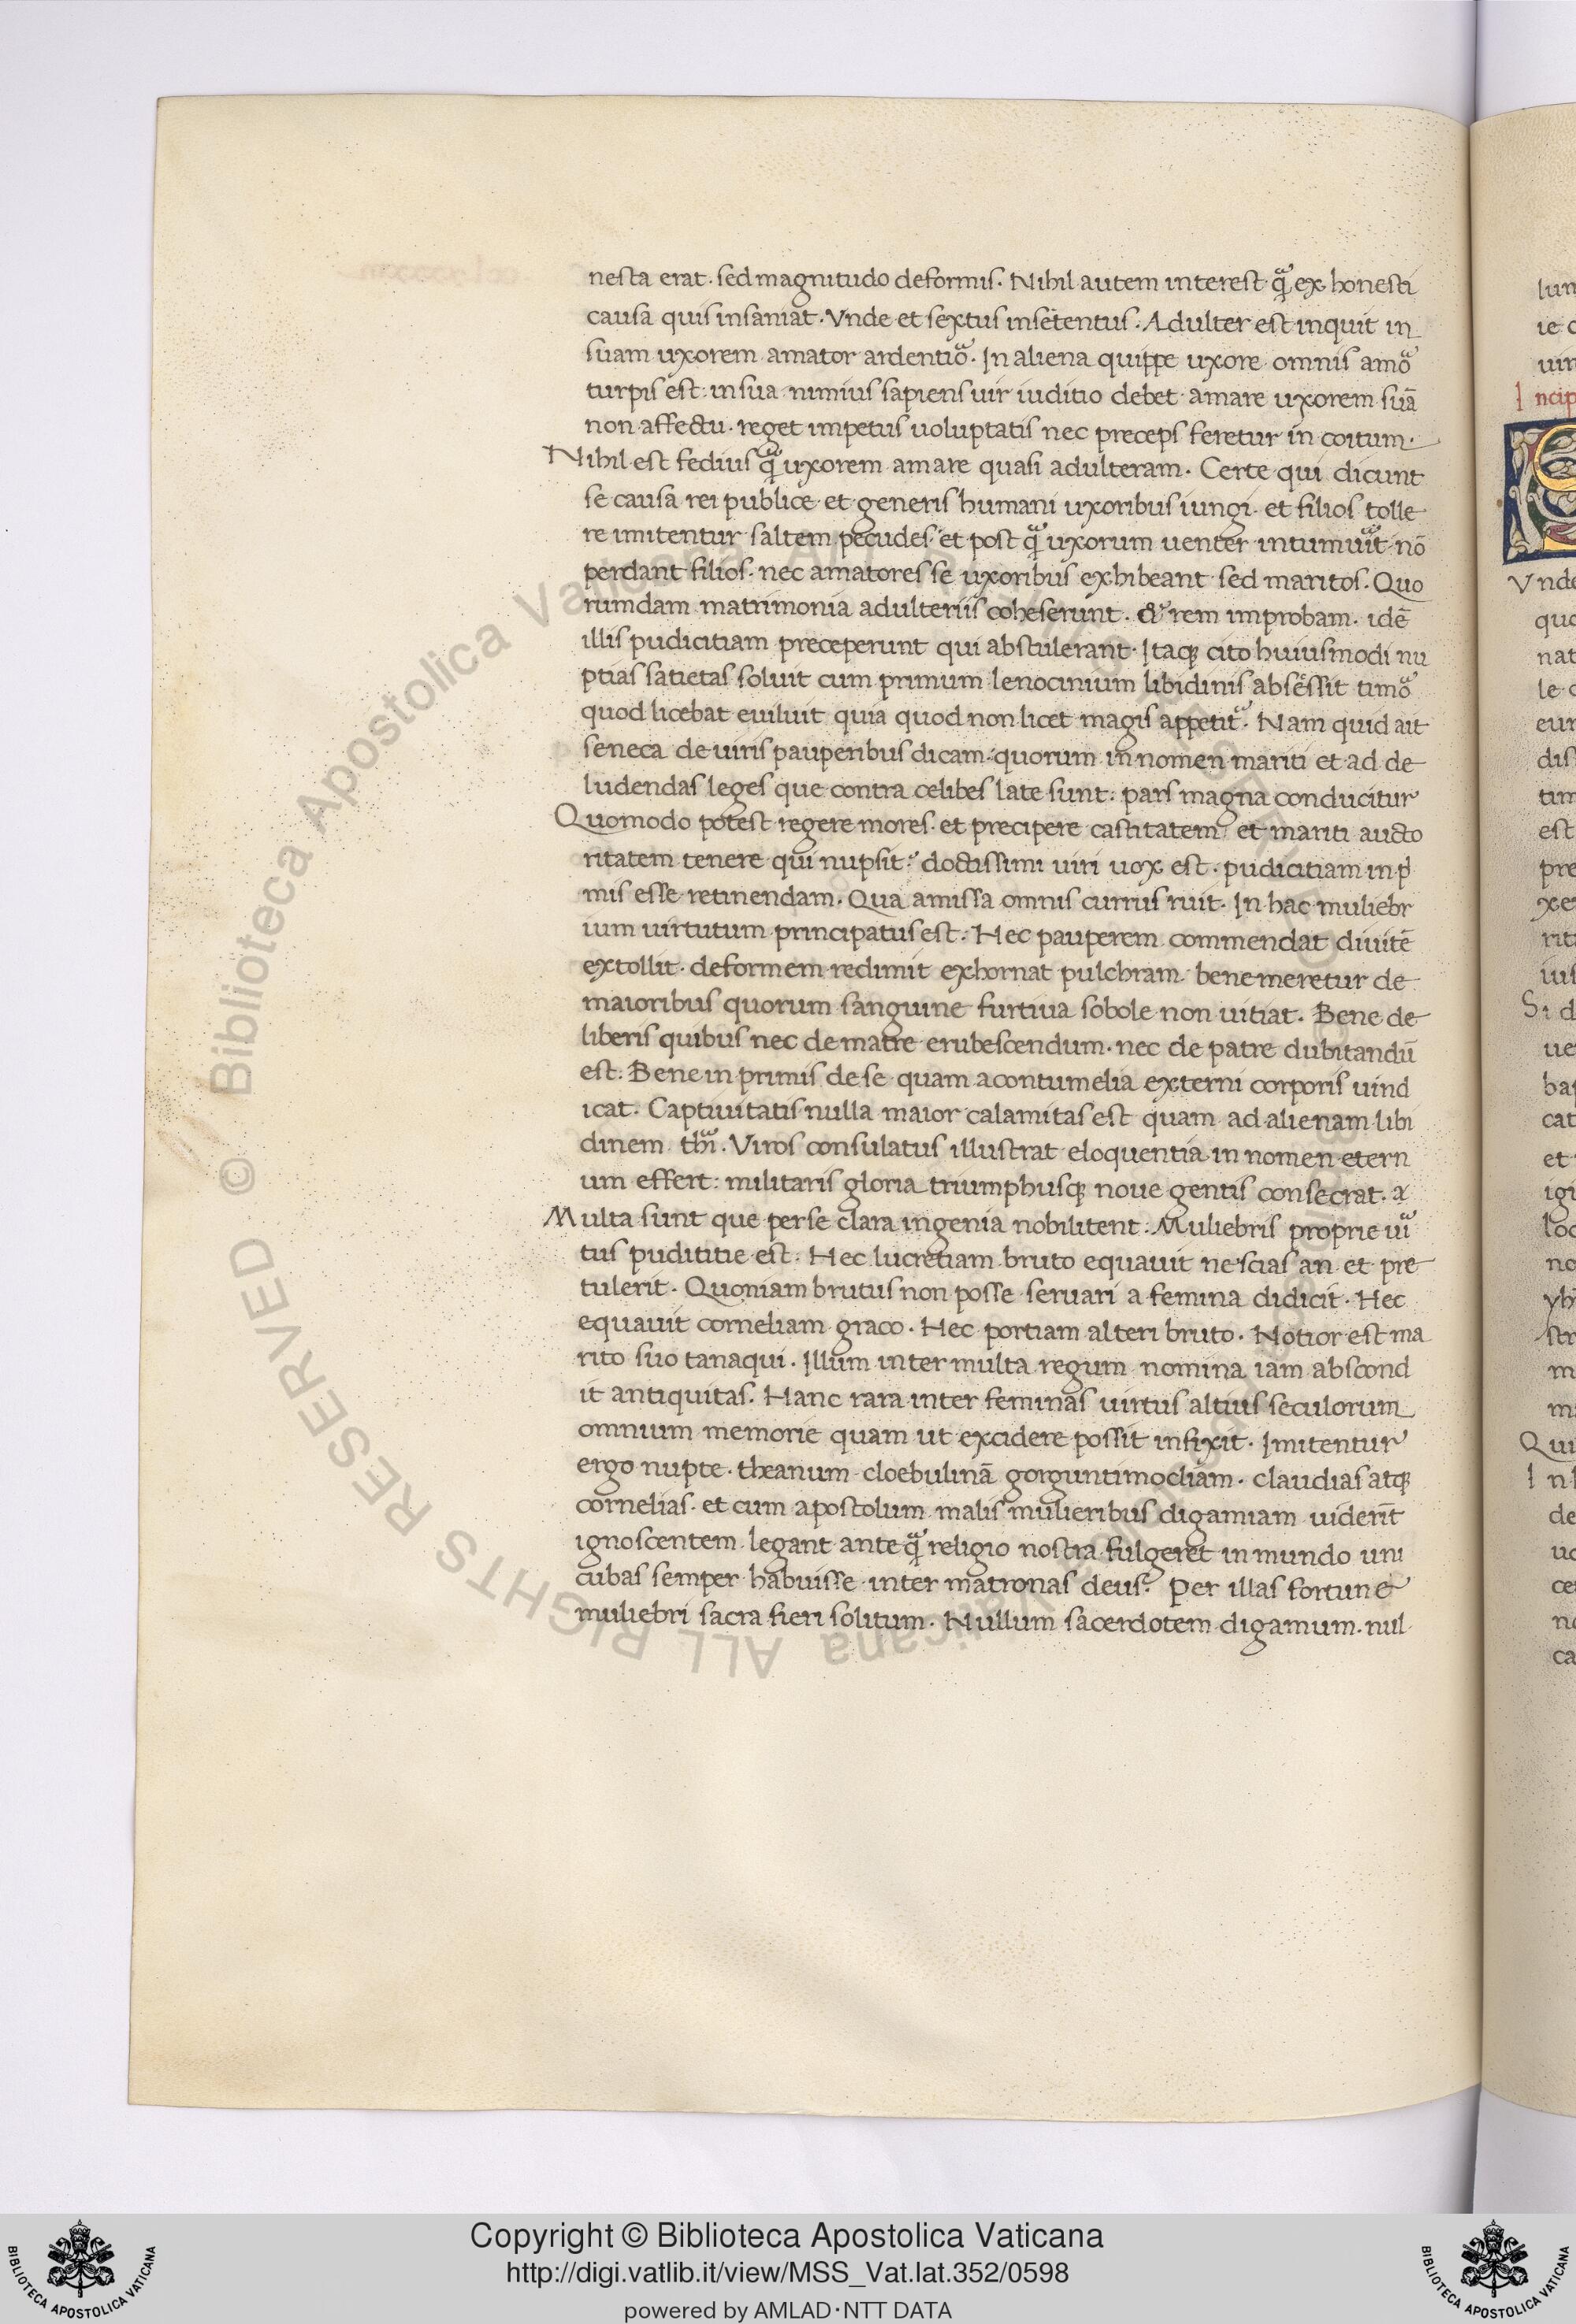 nesta erat. sed magnitudo deformis. Nihil autem interest qᷓ ex honesti
causa quis insaniat. Vnde et sextus insetentus. Adulter est inquit in
suam uxorem amator ardentioᷓ. In aliena quippe uxore omnis amoᷓ
turpis est: in sua nimius sapiens uir iuditio debet amare uxorem suā
non affectu. reget impetus uoluptatis nec preceps feretur in coitum.
Nihil est fedius qᷓ uxorem amare quasi adulteram. Certe qui dicunt
se causa rei publice et generis humani uxoribus iungi et filios tolle
re imitentur saltem pecudes et post qᷓ uxorum uenter intumuit nō
perdant filios. nec amatores se uxoribus exhibeant sed maritos. Quo
rumdam matrimonia adulteriis coheserunt. & rem improbam. idē
illis pudicitiam preceperunt qui abstulerant. Itaqꝫ cito huiusmodi nu
ptias satietas soluit cum primum lenocinium libidinis absessit timoᷓ
quod licebat euiluit quia quod non licet magis appetitᷓ. Nam quid ait
seneca de uiris pauperibus dicam: quorum in nomen mariti et ad de
ludendas leges que contra celibes late sunt: pars magna conducitur
Quomodo potest regere mores. et precipere castitatem et mariti aucto
ritatem tenere qui nupsit? doctissimi uiri uox est. pudicitiam in p̍
mis esse retinendam. Qua amissa omnis currus ruit. In hac muliebr
ium uirtutum principatus est: Hec pauperem commendat diuitē
extollit. deformem redimit exhornat pulchram bene meretur de
maioribus quorum sanguine furtiua sobole non uitiat. Bene de
liberis quibus nec de matre erubescendum. nec de patre dubitandū
est: Bene in primis de se quam a contumelia externi corporis uind
icat. Captiuitatis nulla maior calamitas est quam ad alienam libi
dinem thiᷓ. Viros consulatus illustrat eloquentia in nomen etern
um effert: militaris gloria triumphusqꝫ noue gentis consecrat.
Multa sunt que per se clara ingenia nobilitent: Muliebris proprie uiᷓ
tus pudititie est: Hec lucretiam bruto equauit nescias an et pre
tulerit. Quoniam brutus non posse seruari a femina didicit. Hec
equauit corneliam graco. Hec portiam alteri bruto. Notior est ma
rito suo tanaqui. Illum inter multa regum nomina iam abscond
it antiquitas. Hanc rara inter feminas uirtus altius seculorum
omnium memorie quam ut excidere possit infixit. Imitentur
ergo nupte. theanum cloebulinā gorguntimocliam. claudias atqꝫ
cornelias. et cum apostolum malis mulieribus digamiam uiderīt
ignoscentem legant ante qᷓ religio nostra fulgeret in mundo uni
cubas semper habuisse inter matronas deus? Per illas fortune
muliebri sacra fieri solitum. Nullum sacerdotem digamum. nul
Incip
© Biblioteca Apostolica Vaticana ALL RIGHTS RESERVED
Copyright © Biblioteca Apostolica Vaticana
http://digi.vatlib.it/view/MSS_Vat.lat.352/0598
powered by AMLAD·NTT DATA
BIBLIOTECA APOSTOLICA VATICANA
BIBLIOTECA APOSTOLICA VATICANA